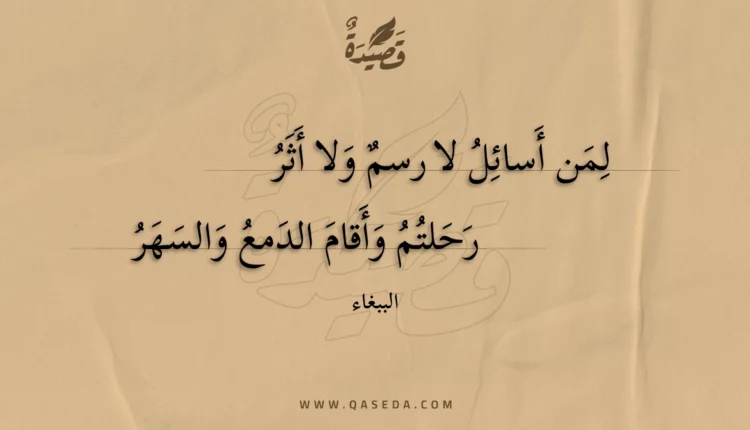 قَصِيْدَةٌ
لِمَن أَسائِلُ لا رسمٌ وَلا أَثَرُ
رَحَلتُمُ وَأَقامَ الدَمعُ وَالسَهَرُ
الببغاء
WWW.QASEDA.COM